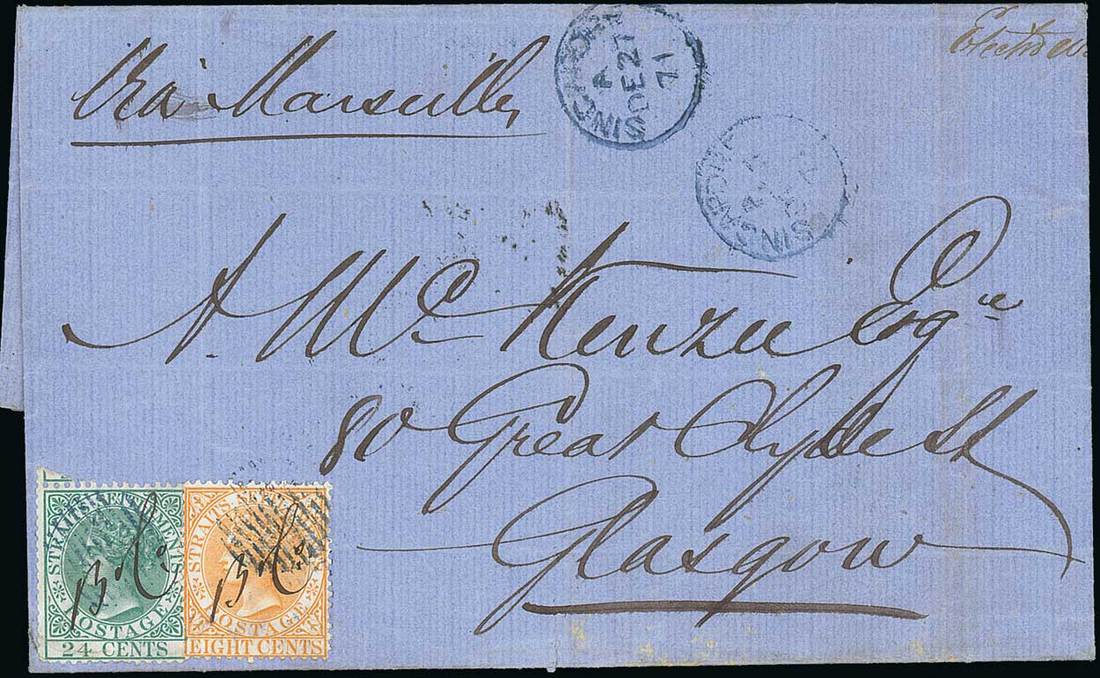 Via Marseilles
SINGAPORE
A
DE 27
71
SINGAPORE
A. Mc Kenzie Esqre
80 Great Clyde St
Glasgow
STRAITS SETTLEMENTS
POSTAGE
24 CENTS
STRAITS SETTLEMENTS
POSTAGE
EIGHT CENTS